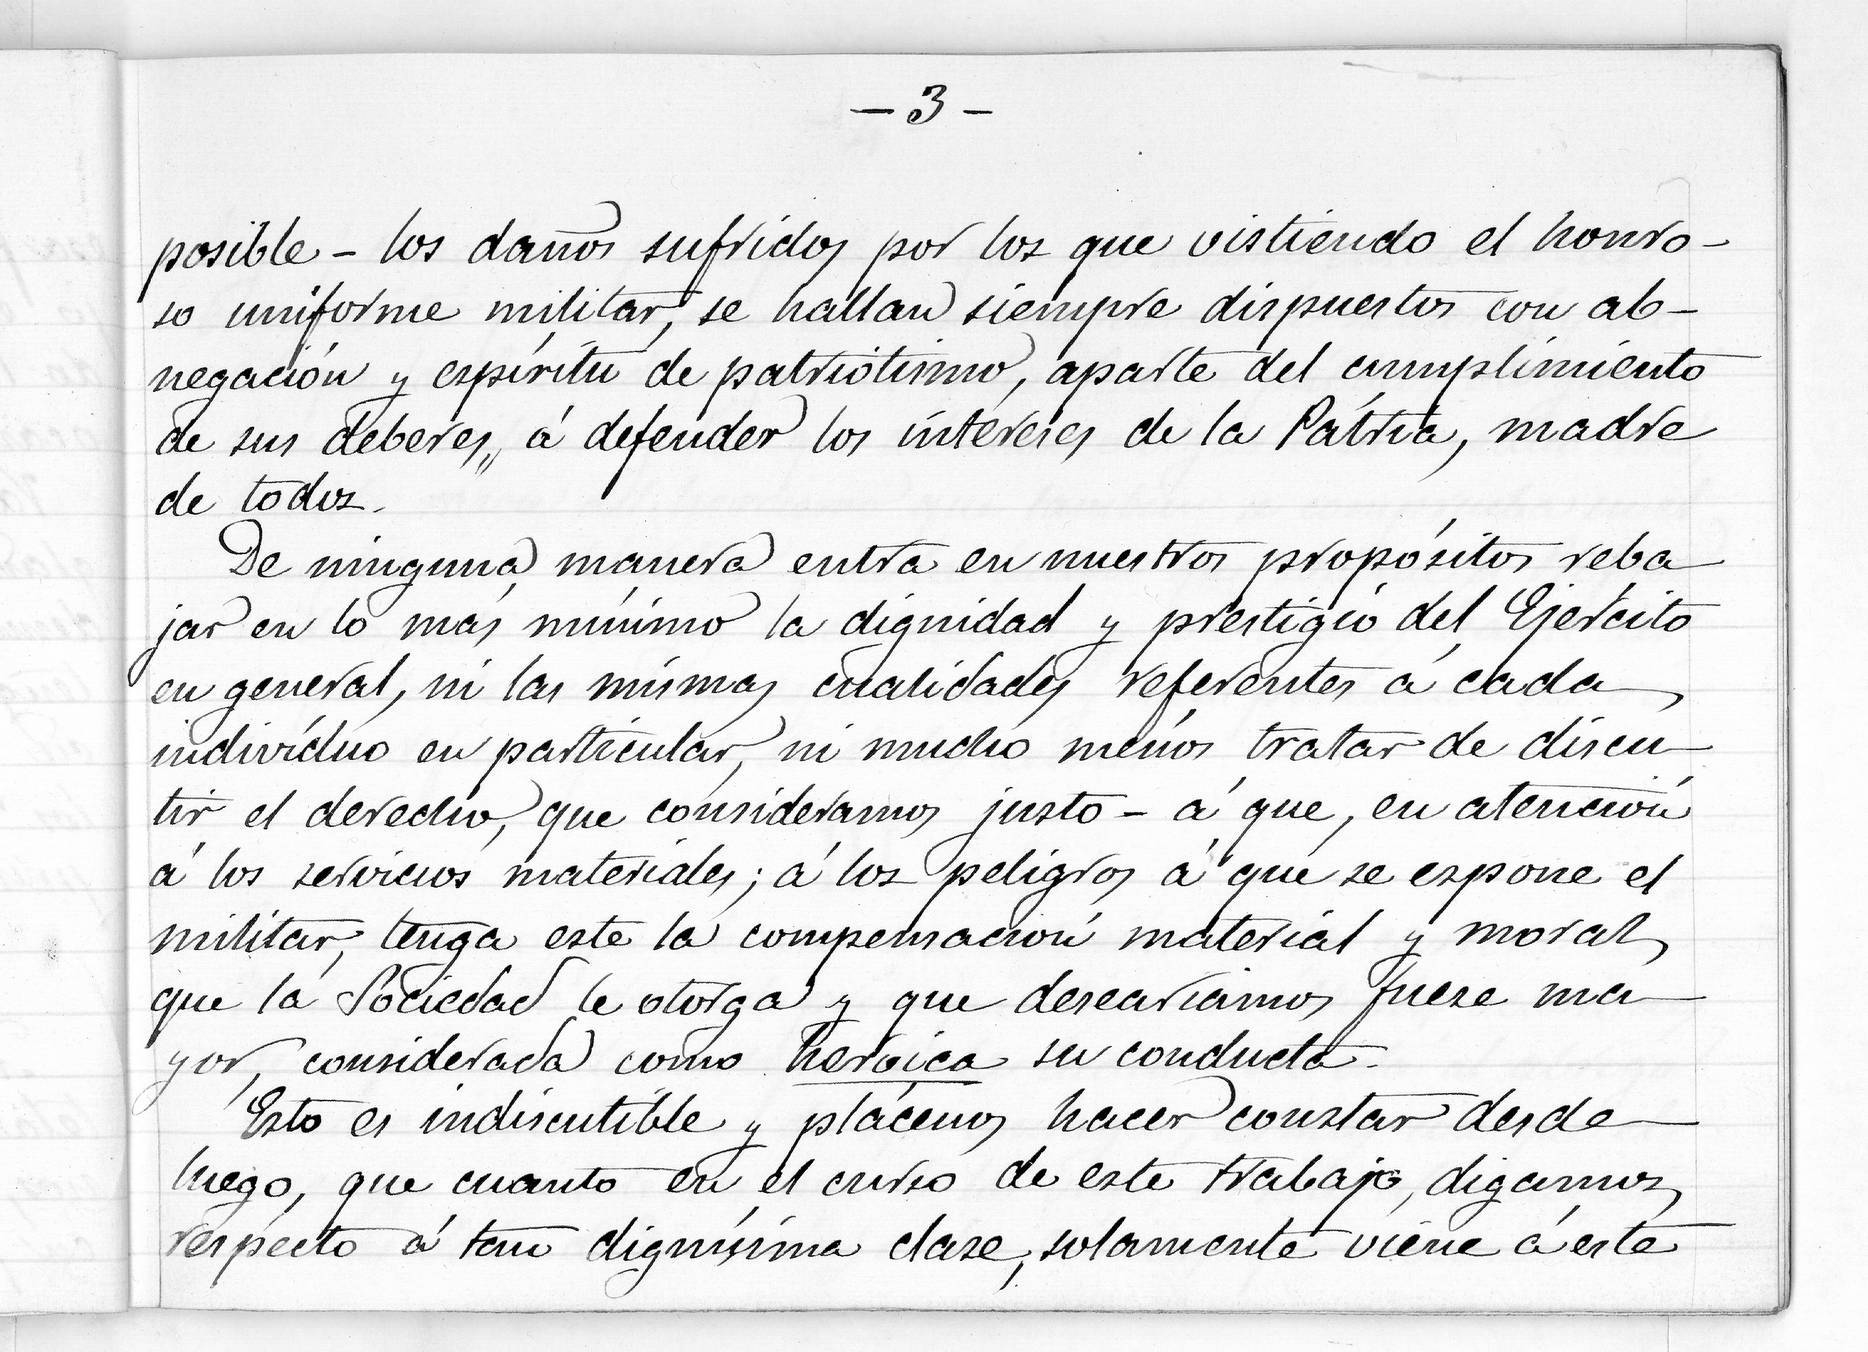 — 3 —
posible – los daños sufridos por los que vistiendo el honro-
so uniforme militar, se hallan siempre dispuestos con ab-
negación y espíritu de patriotismo, aparte del cumplimiento
de sus deberes, á defender los intereses de la Pátria, madre
de todos.
De ninguna manera entra en nuestros propósitos reba
jar en lo más mínimo la dignidad y prestigio del Ejército
en general, ni las mismas cualidades referentes á cada
indivíduo en particular, ni mucho ménos tratar de discu
tir el derecho, que consideramos justo – á que, en atención
á los servicios materiales; á los peligros á que se espone el
militar, tenga este la compensación material y moral,
que la Sociedad le otorga y que deseariamos fuese ma
yor, considerada como heroica su conducta.
Esto es indiscutible y plácenos hacer constar desde
luego, que cuanto en el curso de este trabajo, digamos,
respecto á tan dignísima clase, solamente viene á este